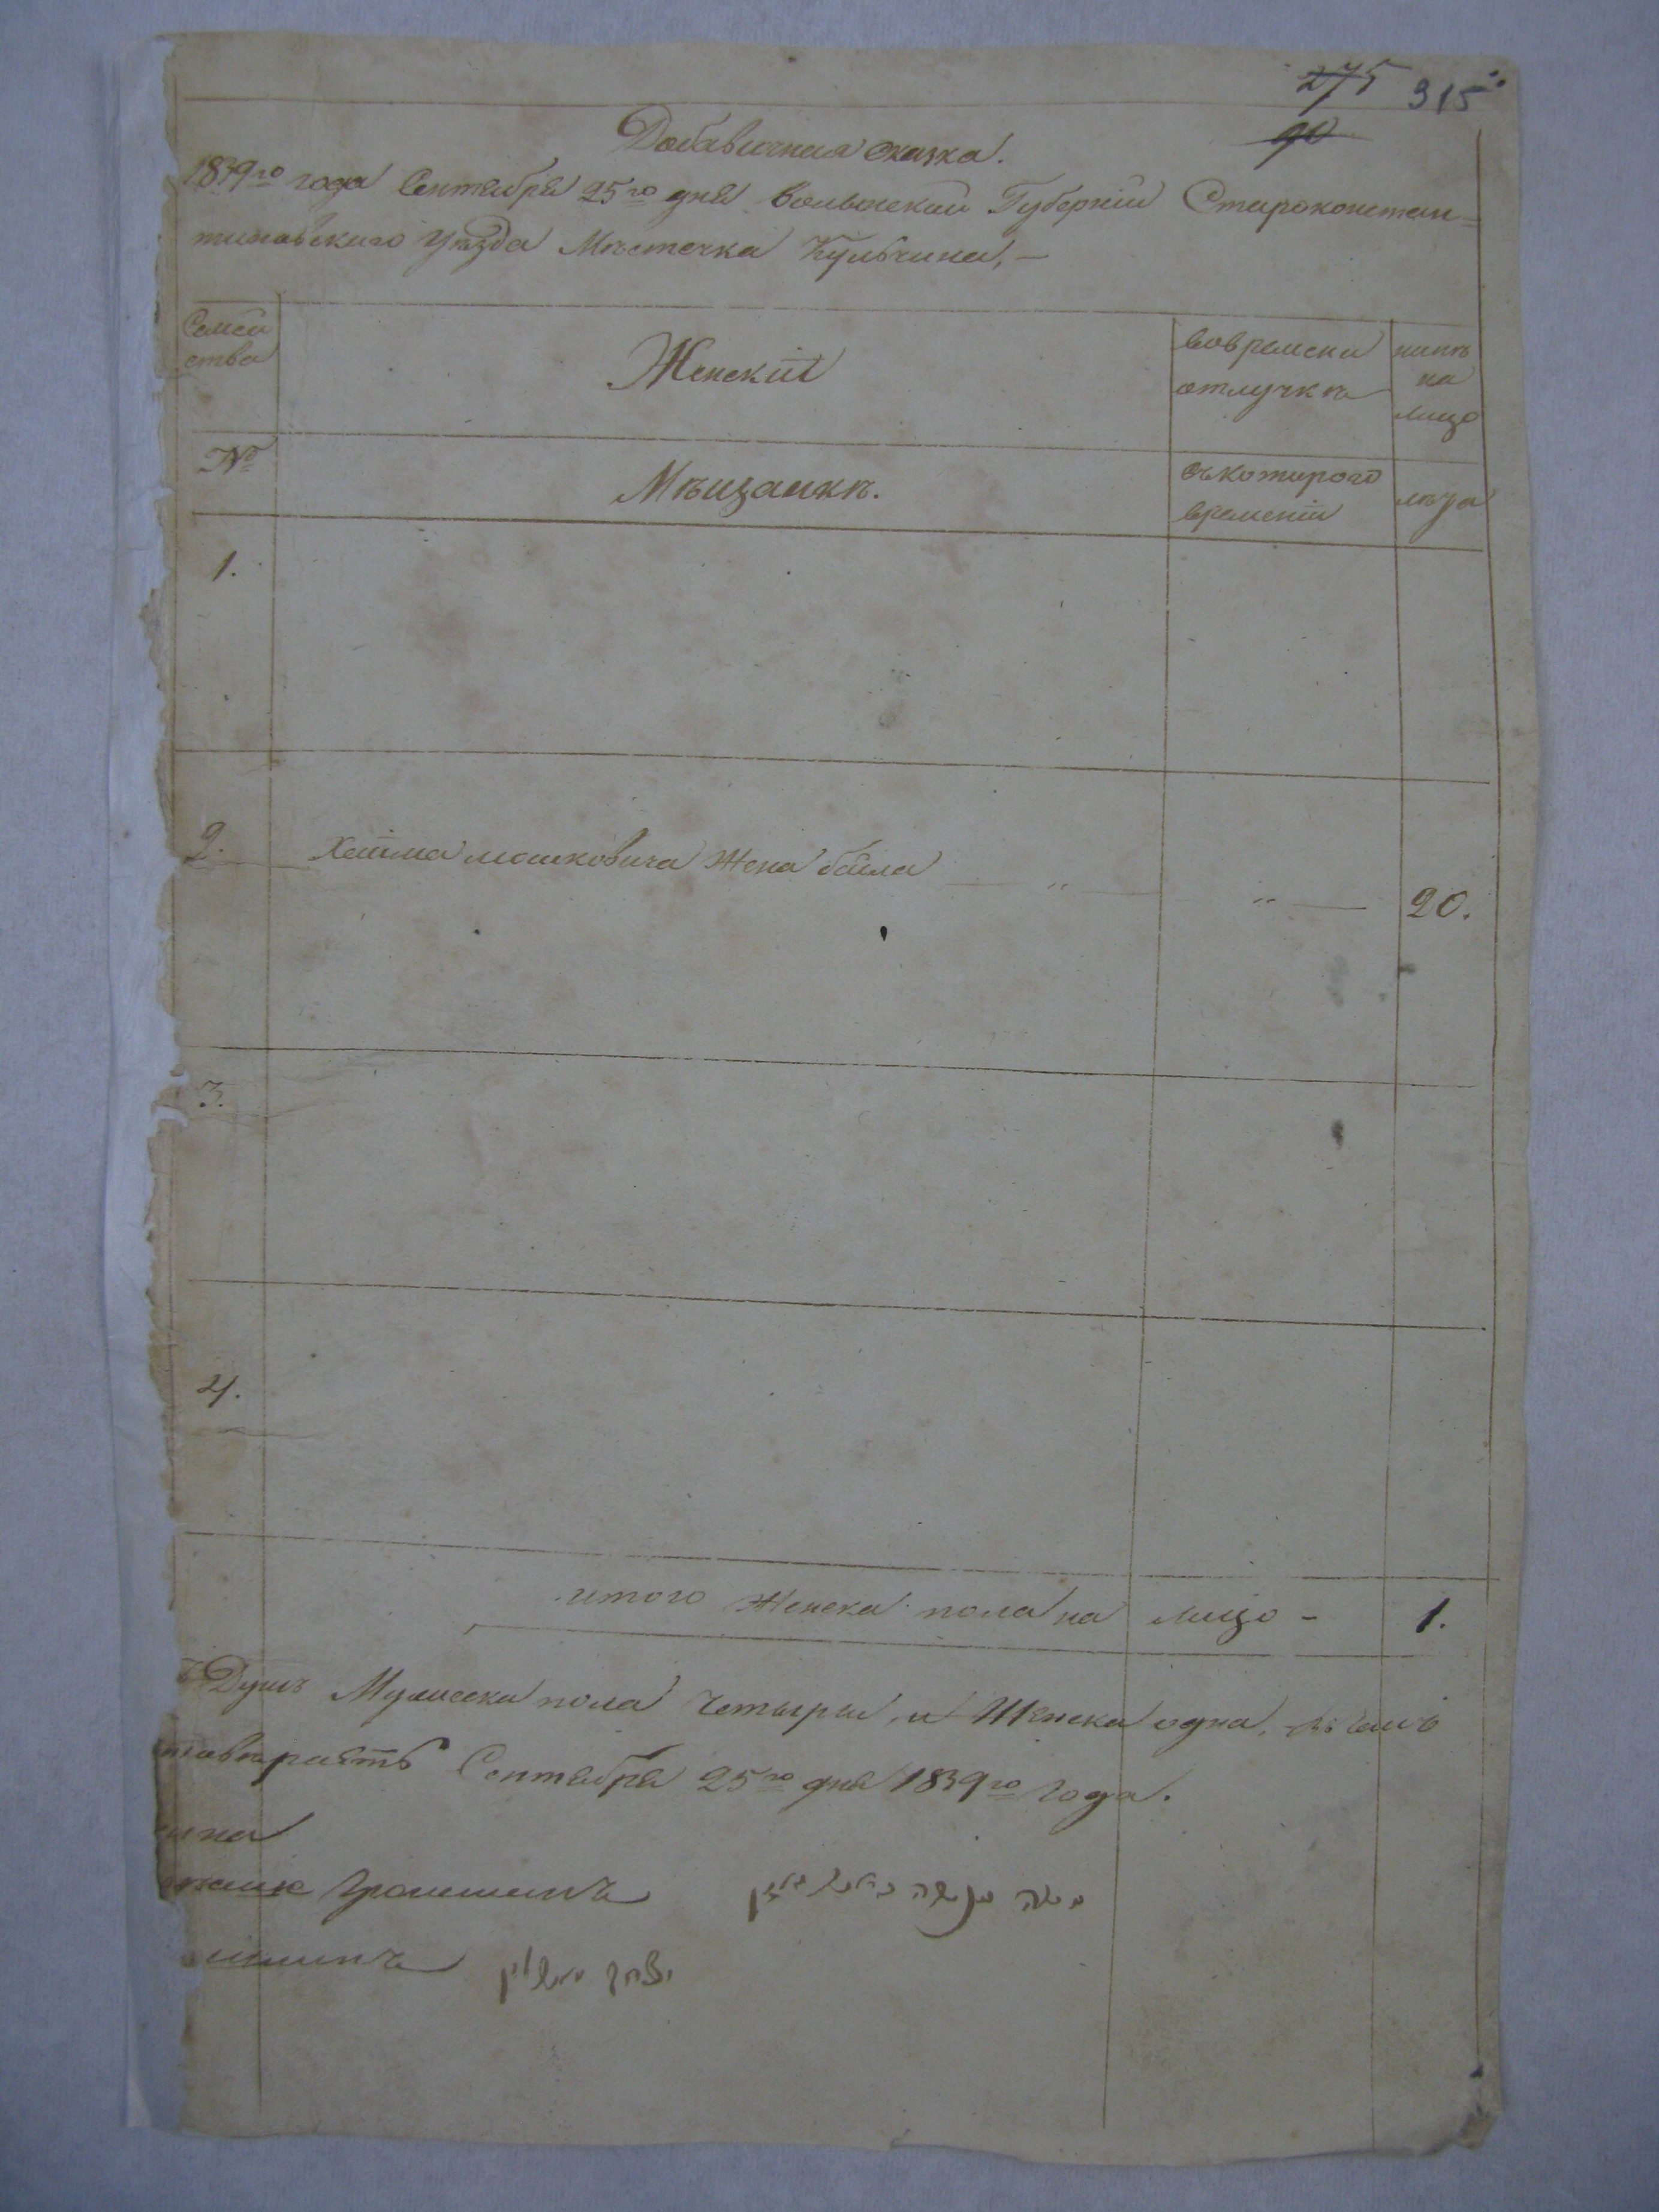 275 315
90
Добавичная сказка.
1839го года Сентября 25го дня Волынской Губернiи Староконстан=
тиновскаго уѣзда Мѣстечка Кульчина, —
Семей
ства
Женскiй
вовремена
отлучкѣ
нынѣ
на
лицо
№
Мѣщанкѣ.
съкоторого
временiи
лѣта
1.
2. Хаима мошковича Жена баила — " — " — 20.
3.
4.
итого Женска пола на лицо - 1.
Душъ Мужеска пола Четыри, и Женска одна,
Сентября 25го дня 1839го года.
יצחק